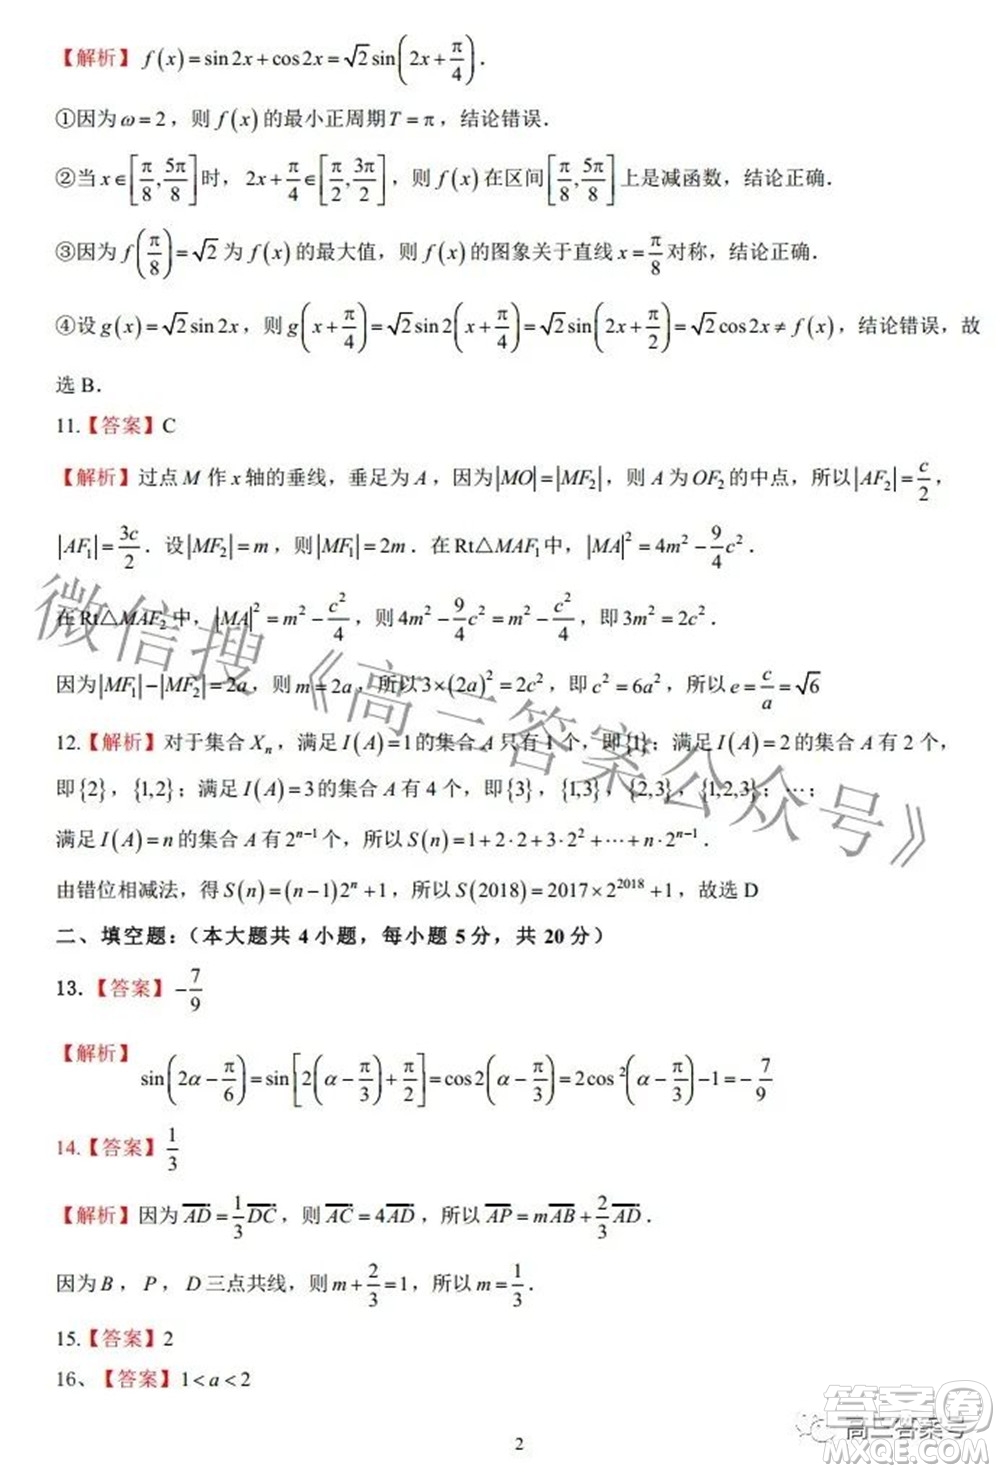 【解析】f(x)=sin2x+cos2x=√2sin(2x+π/4).
①因为ω=2，则f(x)的最小正周期T=π，结论错误.
②当x∈[π/8,5π/8]时，2x+π/4∈[π/2,3π/2]，则f(x)在区间[π/8,5π/8]上是减函数，结论正确.
③因为f(π/8)=√2为f(x)的最大值，则f(x)的图象关于直线x=π/8对称，结论正确.
④设g(x)=√2sin2x，则g(x+π/4)=√2sin2(x+π/4)=√2sin(2x+π/2)=√2cos2x≠f(x)，结论错误，故
选B.
11.【答案】C
【解析】过点M作x轴的垂线，垂足为A，因为|MO|=|MF₂|，则A为OF₂的中点，所以|AF₂|=c/2，
|AF₁|=3c/2.设|MF₂|=m，则|MF₁|=2m.在Rt△MAF₁中，|MA|²=4m²-9/4c².
在Rt△MAF₂中，|MA|²=m²-c²/4，则4m²-9/4c²=m²-c²/4，即3m²=2c².
因为|MF₁|-|MF₂|=2a，则m=2a，所以3×(2a)²=2c²，即c²=6a²，所以e=c/a=√6
12.【解析】对于集合Xₙ，满足I(A)=1的集合A只有1个，即{1}；满足I(A)=2的集合A有2个，
即{2}，{1,2}；满足I(A)=3的集合A有4个，即{3}，{1,3}，{2,3}，{1,2,3}；⋯；
满足I(A)=n的集合A有2ⁿ⁻¹个，所以S(n)=1+2·2+3·2²+⋯+n·2ⁿ⁻¹.
由错位相减法，得S(n)=(n-1)2ⁿ+1，所以S(2018)=2017×2²⁰¹⁸+1，故选D
二、填空题：（本大题共4小题，每小题5分，共20分）
13.【答案】-7/9
【解析】sin(2α-π/6)=sin[2(α-π/3)+π/2]=cos2(α-π/3)=2cos²(α-π/3)-1=-7/9
14.【答案】1/3
【解析】因为AD=1/3DC，则AC=4AD，所以AP=mAB+2/3AD.
因为B，P，D三点共线，则m+2/3=1，所以m=1/3.
15.【答案】2
16、【答案】1<a<2
微信搜《高三答案公众号》
高三答案号
答案圈
MXQE.COM
2